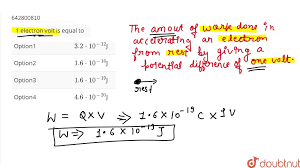 642800810
1 electron volt is equal to
Option1 3.2 · 10⁻¹⁹J
Option2 1.6 · 10⁻¹⁹J
Option3 1.6 · 10
Option4 4.6 · 10⁻¹⁰J
The amount of work done in
accelerating an electron
from rest by giving a
potential difference of one volt.
rest
W = Q×V ⇒ 1.6 × 10⁻¹⁹ C × 1 V
W ⇒ 1.6 × 10⁻¹⁹ J
doubtnut